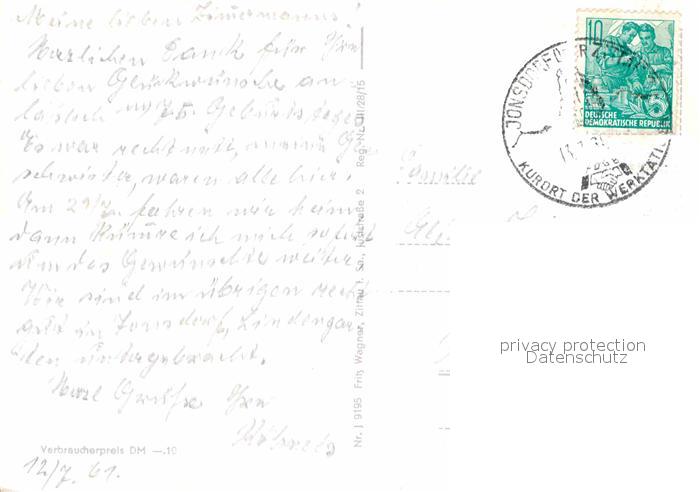 Meine lieben Zimmermanns!
Herzlichen Dank für Ihre
lieben Glückwünsche an
meines 75. Geburtstages.
Es war recht nett, meine Ge
schwister, waren alle hier.
Am 29/7. fahren wir heim
dann kümmre ich mich sofort
um das Gewünschte weiter.
Wir sind im übrigen recht
gut in Jonsdorf, Lindengar
ten untergebracht.
Herzl Grüße Ihre
Verbraucherpreis DM —.10
12/7. 61.
Nr. J 9195 Fritz Wagner, Zittau i. Sa., Juststraße 2 Reg.-Nr. III/28/15
Familie
10
DEUTSCHE
DEMOKRATISCHE REPUBLIK
JONSDORF
KURORT DER WERKTÄTI
privacy protection
Datenschutz